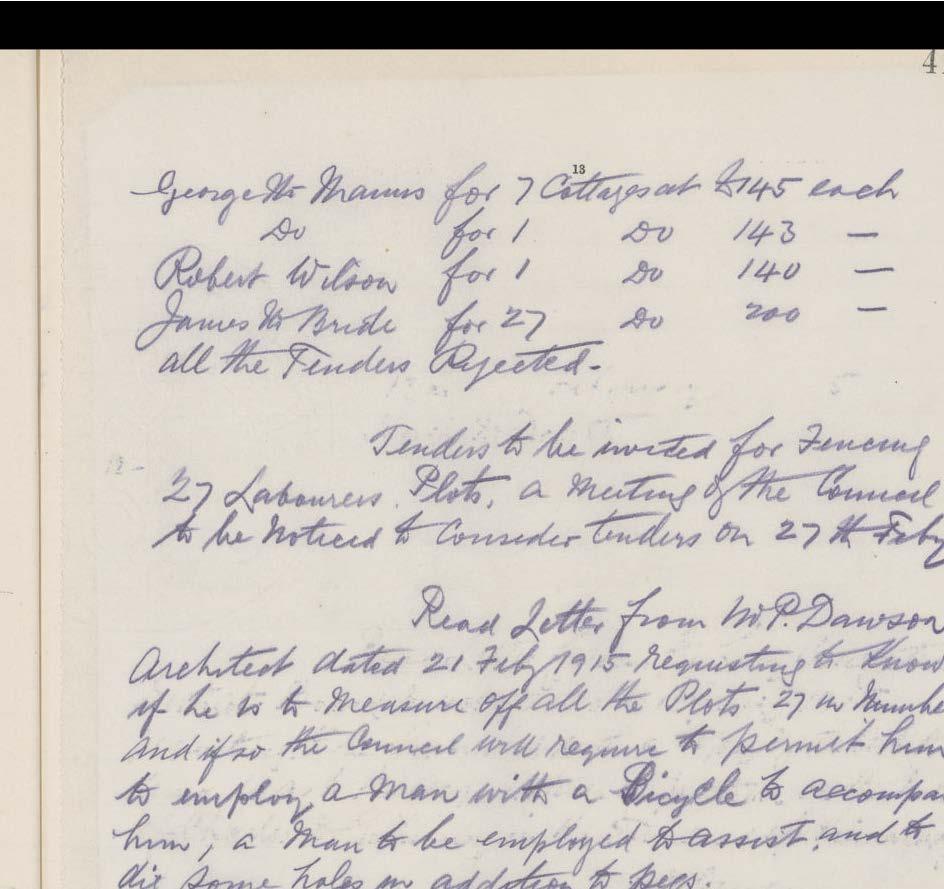 41
13
George Mc Manus for 7 Cottages at £145 each
Do for 1 Do 143 —
Robert Wilson for 1 Do 140 —
James Mc Bride for 27 Do 200 —
all the Tenders Rejected -
Tenders to be invited for Fencing
27 Labourers Plots, a Meeting of the Council
to be Noticed to Consider tenders on 27th Feby
Read Letter from W.P. Dawson
Architect dated 21 Feby 1915 requesting to know
if he is to Measure off all the Plots 27 in Numbe
and if so the Council will require to permit him
to employ a Man with a Bicycle to accompa
him, a Man to be employed to assist and to
dig some holes in addition to pegs.